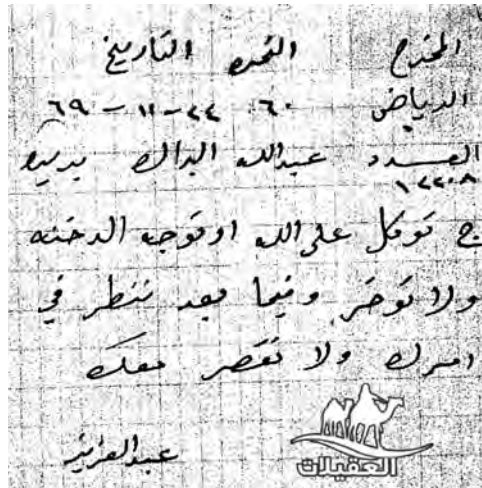 المخرج النمرة التاريخ
الرياض ٦٠ ٢٤-١١-٦٩
العدد عبدالله البراك بريده
١٢٢٠٨
ج توكل على الله اوتوجه الدخنه
ولا توخر وفيما بعد ننظر في
امرك ولا نقصر معك
عبدالعزيز
العقيلات